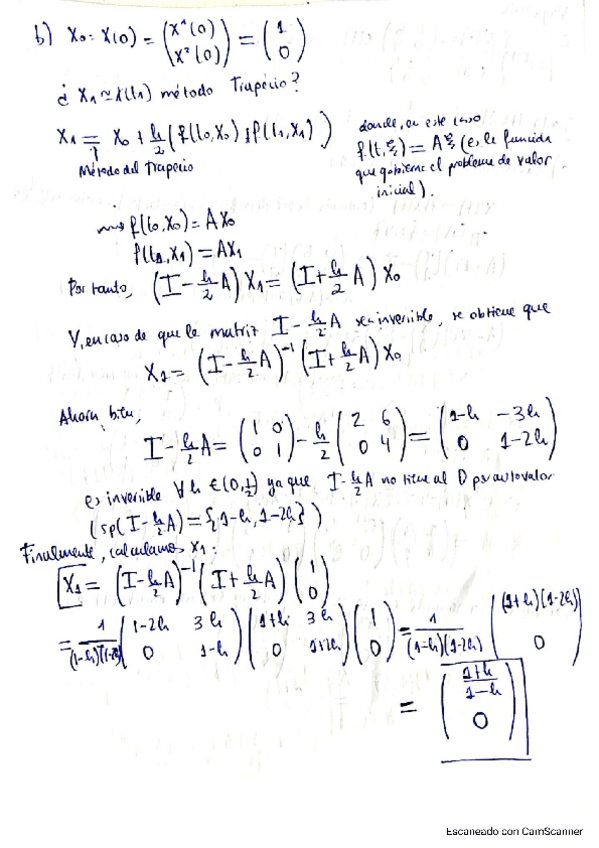 b) X₀ = X(0) = (x¹(0) x²(0)) = (1 0)
¿ X₁ ≃ X(t₁) método Trapecio?
X₁ = X₀ + h/2 (f(t₀,X₀) + f(t₁,X₁))
Método del Trapecio
donde, en este caso
f(t,ξ) = Aξ (es la función
que gobierna el problema de valor
inicial).
⇝ f(t₀,X₀) = AX₀
f(t₁,X₁) = AX₁
Por tanto, (I - h/2 A) X₁ = (I + h/2 A) X₀
Y, en caso de que la matriz I - h/2 A sea invertible, se obtiene que
X₁ = (I - h/2 A)⁻¹ (I + h/2 A) X₀
Ahora bien,
I - h/2 A = (1 0 0 1) - h/2 (2 6 0 4) = (1-h -3h 0 1-2h)
es invertible ∀ h ∈ (0, 1/2) ya que I - h/2 A no tiene al 0 por autovalor
(sp(I - h/2 A) = {1-h, 1-2h})
Finalmente, calculamos X₁:
X₁ = (I - h/2 A)⁻¹ (I + h/2 A) (1 0)
= 1/(1-h)(1-2h) (1-2h 3h 0 1-h) (1+h 3h 0 1+2h) (1 0) = 1/(1-h)(1-2h) ((1+h)(1-2h) 0)
= (1+h/1-h 0)
Escaneado con CamScanner